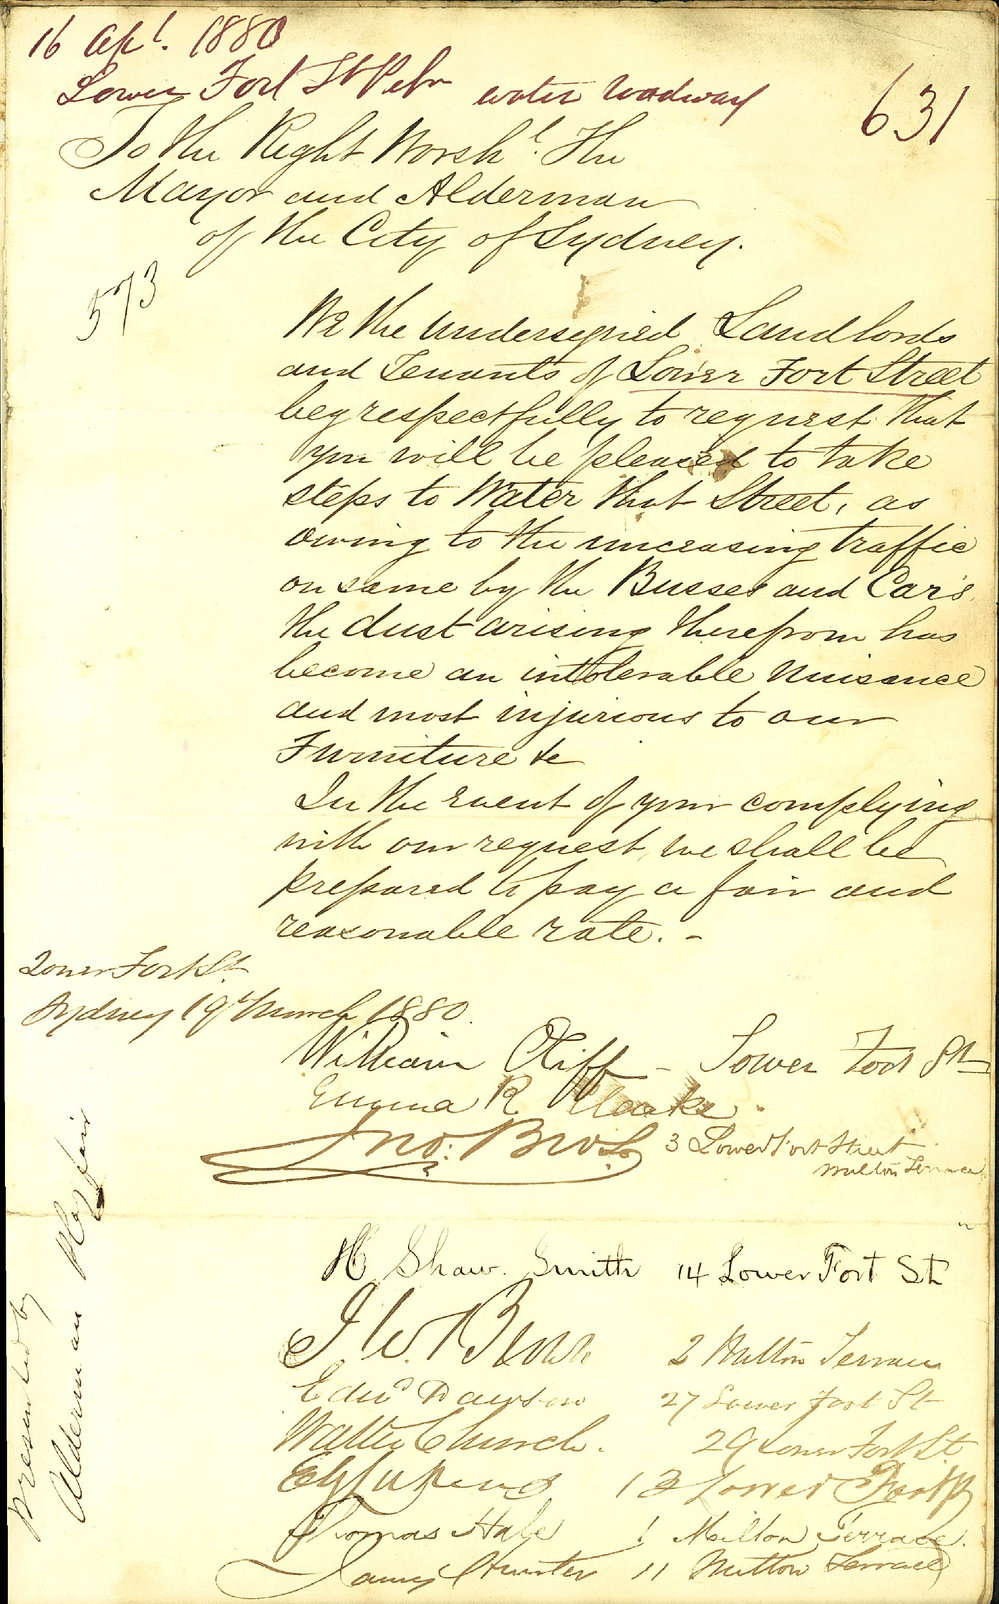 16 Apl. 1880
Lower Fort St Petn water roadway
631
To the Right Worshl. The
Mayor and Alderman
of the City of Sydney.
573
We the undersigned Landlords
and Tenants of Lower Fort Street
beg respectfully to request that
you will be pleased to take
steps to Water that Street, as
owing to the unceasing traffic
on same by the Busses and Car's
the dust arising therefrom has
become an intolerable Nuisance
and most injurious to our
Furniture &c
In the event of your complying
with our request, we shall be
prepared to pay a fair and
reasonable rate. -
Lower Fort St.
Sydney 19th March 1880.
William Oliff - Lower Fort St
R Cloake.
Jno: 3 Lower Fort Street
Milton Terrace
H Shaw. Smith 14 Lower Fort St
J W. Brown 2 Milton Terrace
Edwd Dawson 27 Lower Fort St
Walter Church. 29 Lower Fort St
13 Lower Fort St
Thomas Hale 1 Milton Terrace.
James Hunter 11 Milton Terrace
Presented by
Alderman